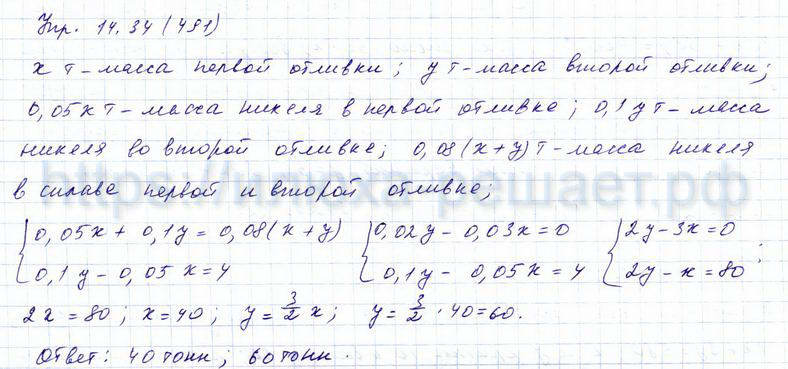 Упр. 14.34 (481)
x т – масса первой отливки; y т – масса второй отливки;
0,05x т – масса никеля в первой отливке; 0,1y т – масса
никеля во второй отливке; 0,08(x+y) т – масса никеля
в сплаве первой и второй отливке;
{0,05x + 0,1y = 0,08(x+y) {0,02y – 0,03x = 0 {2y – 3x = 0
0,1y – 0,05x = 4 0,1y – 0,05x = 4 2y – x = 80 ;
2x = 80; x = 40; y = 3/2 x; y = 3/2 · 40 = 60.
Ответ: 40 тонн; 60 тонн.